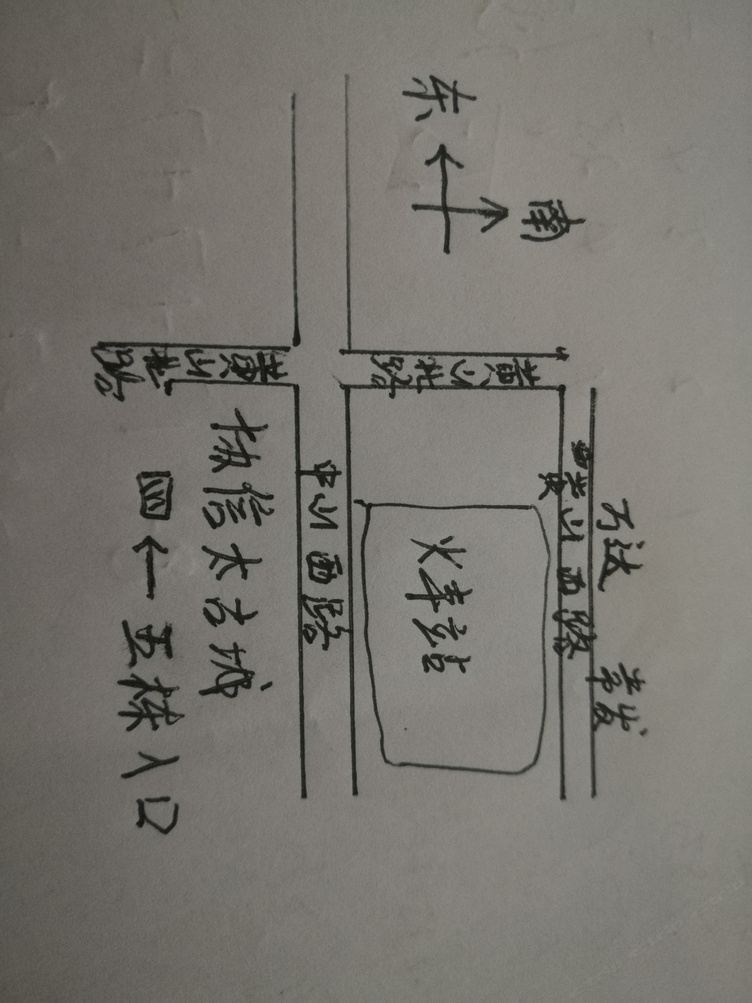 万达 常发
黄山西路
南
黄山北路
火车站
东
中山西路
黄山北路
协信太古城
四←五栋入口